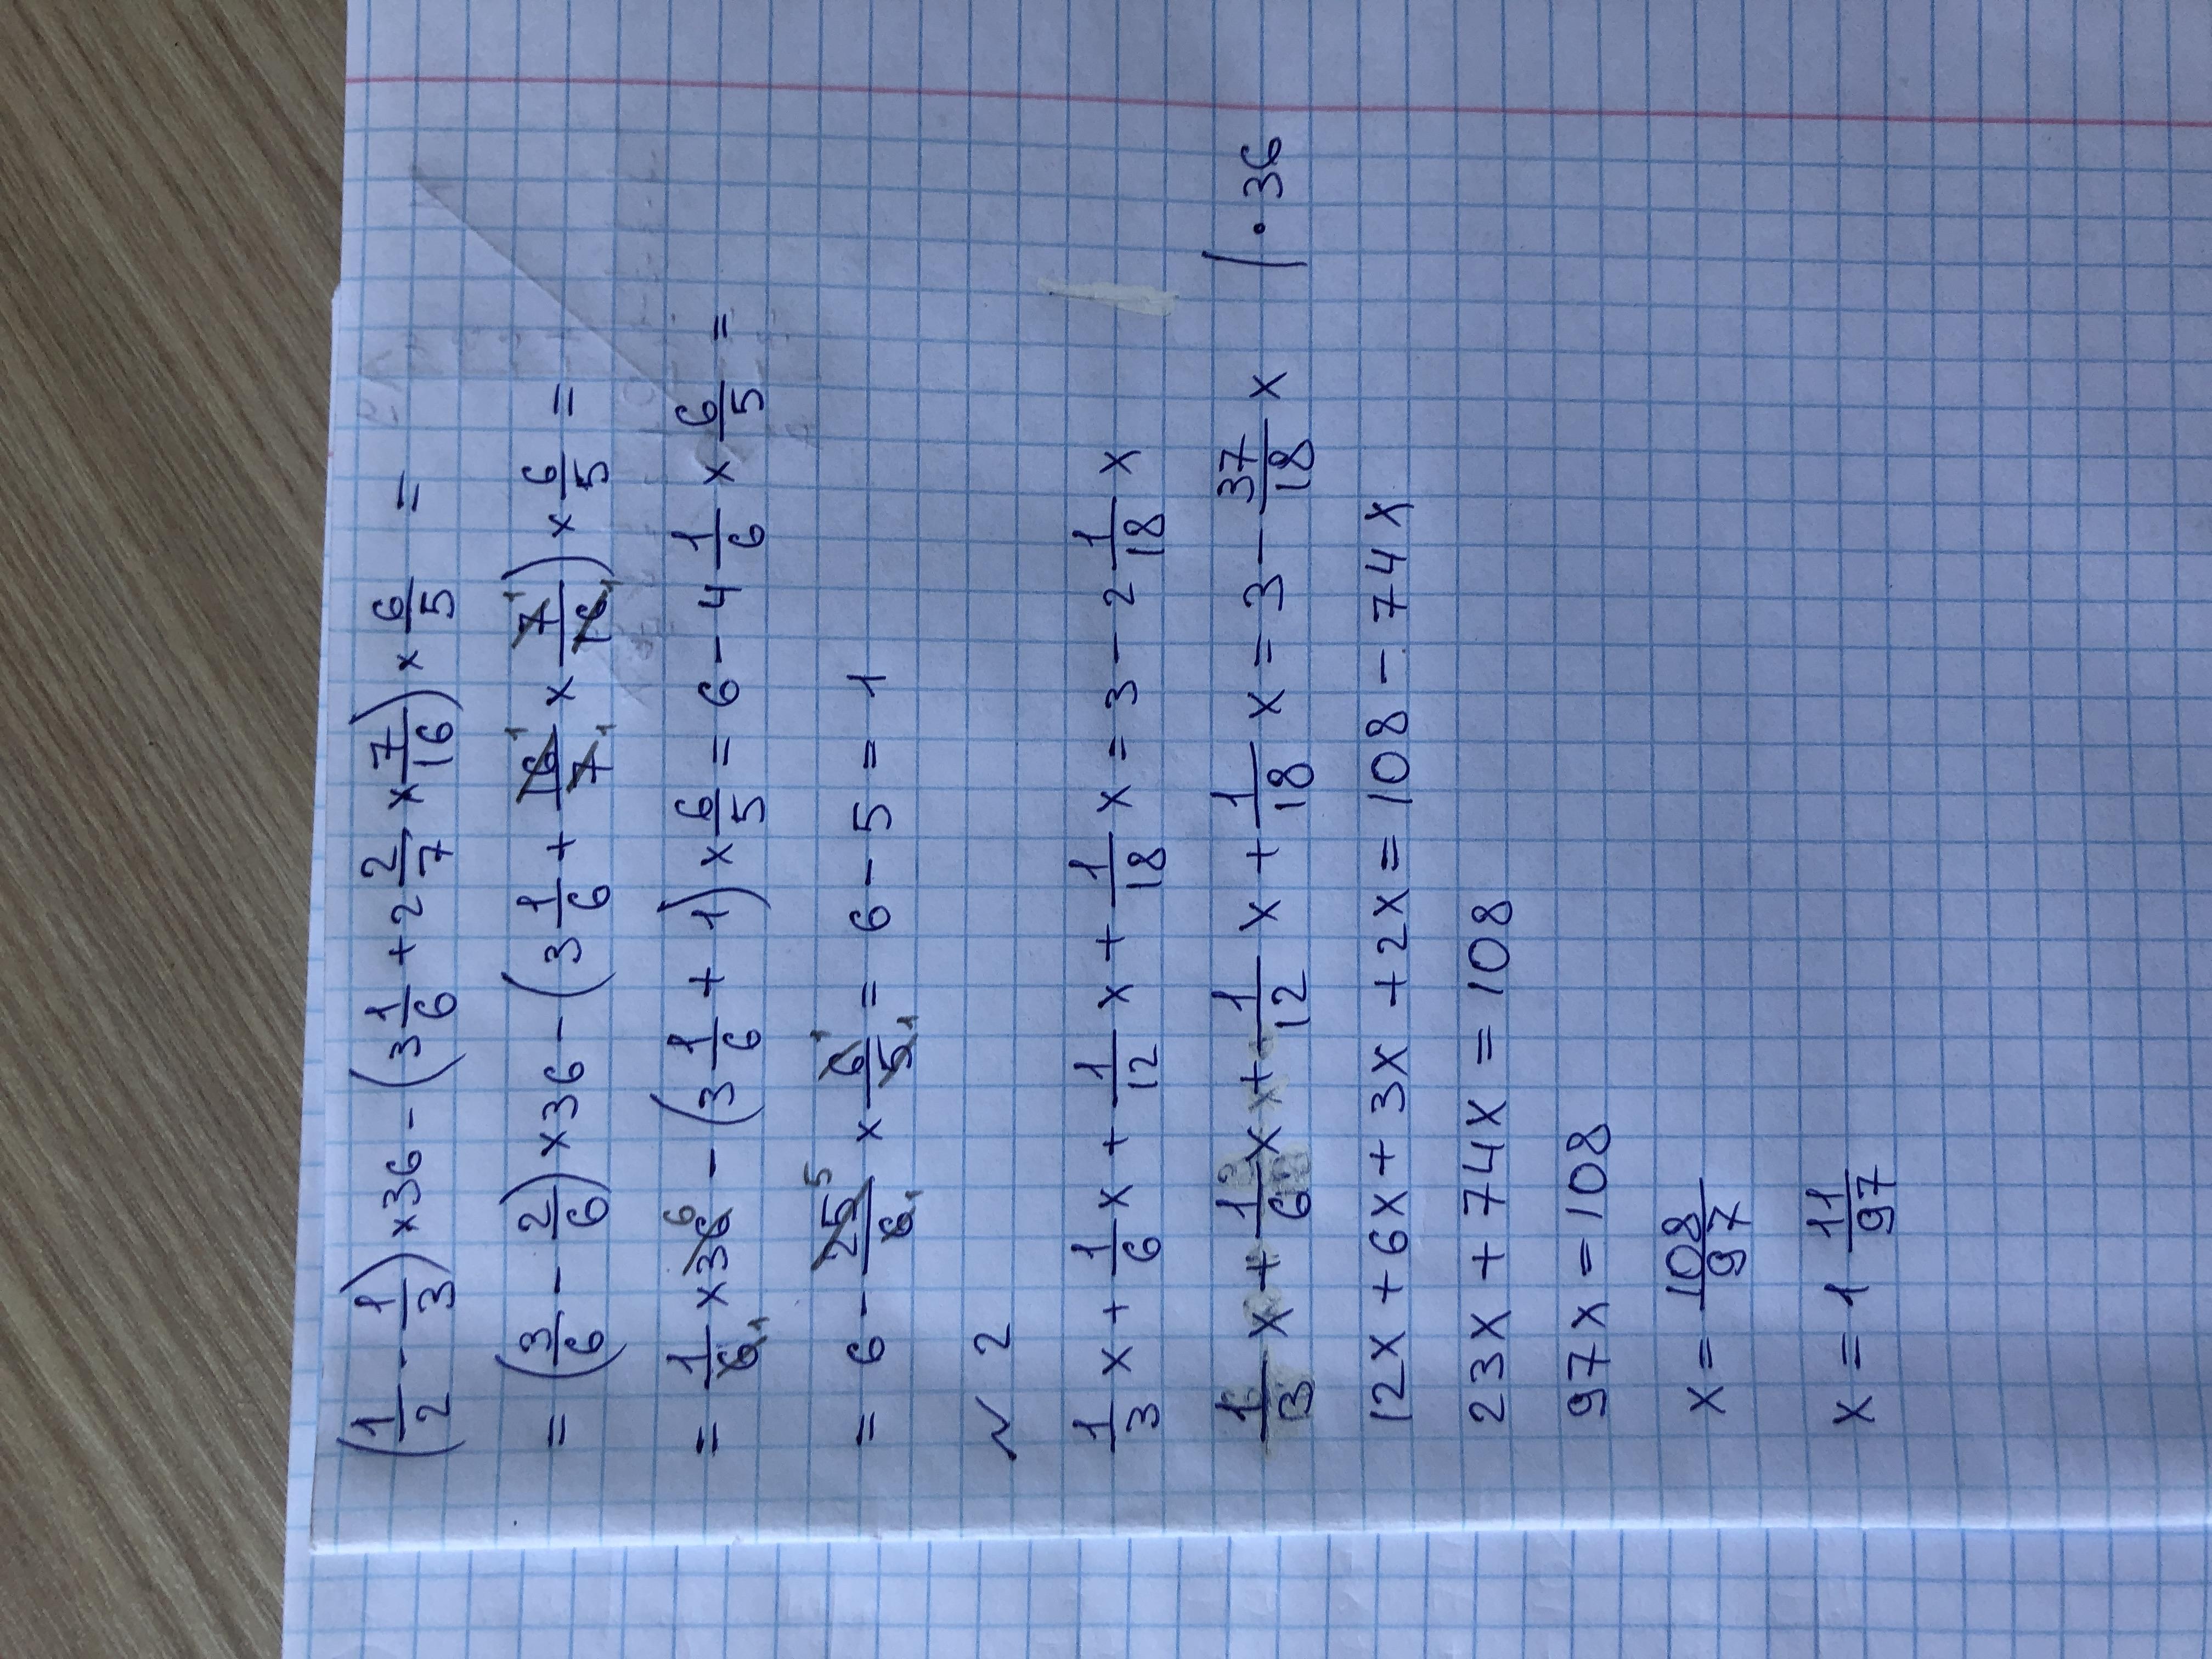 (1/2 - 1/3) × 36 - (3 1/6 + 2 2/7 × 7/16) × 6/5 =
= (3/6 - 2/6) × 36 - (3 1/6 + 16/7 × 7/16) × 6/5 =
= 1/6 × 36 - (3 1/6 + 1) × 6/5 = 6 - 4 1/6 × 6/5 =
= 6 - 25/6 × 6/5 = 6 - 5 = 1
~ 2
1/3 x + 1/6 x + 1/12 x + 1/18 x = 3 - 2 1/18 x
1/3 x + 1/6 x + 1/12 x + 1/18 x = 3 - 37/18 x | · 36
12x + 6x + 3x + 2x = 108 - 74x
23x + 74x = 108
97x = 108
x = 108/97
x = 1 11/97